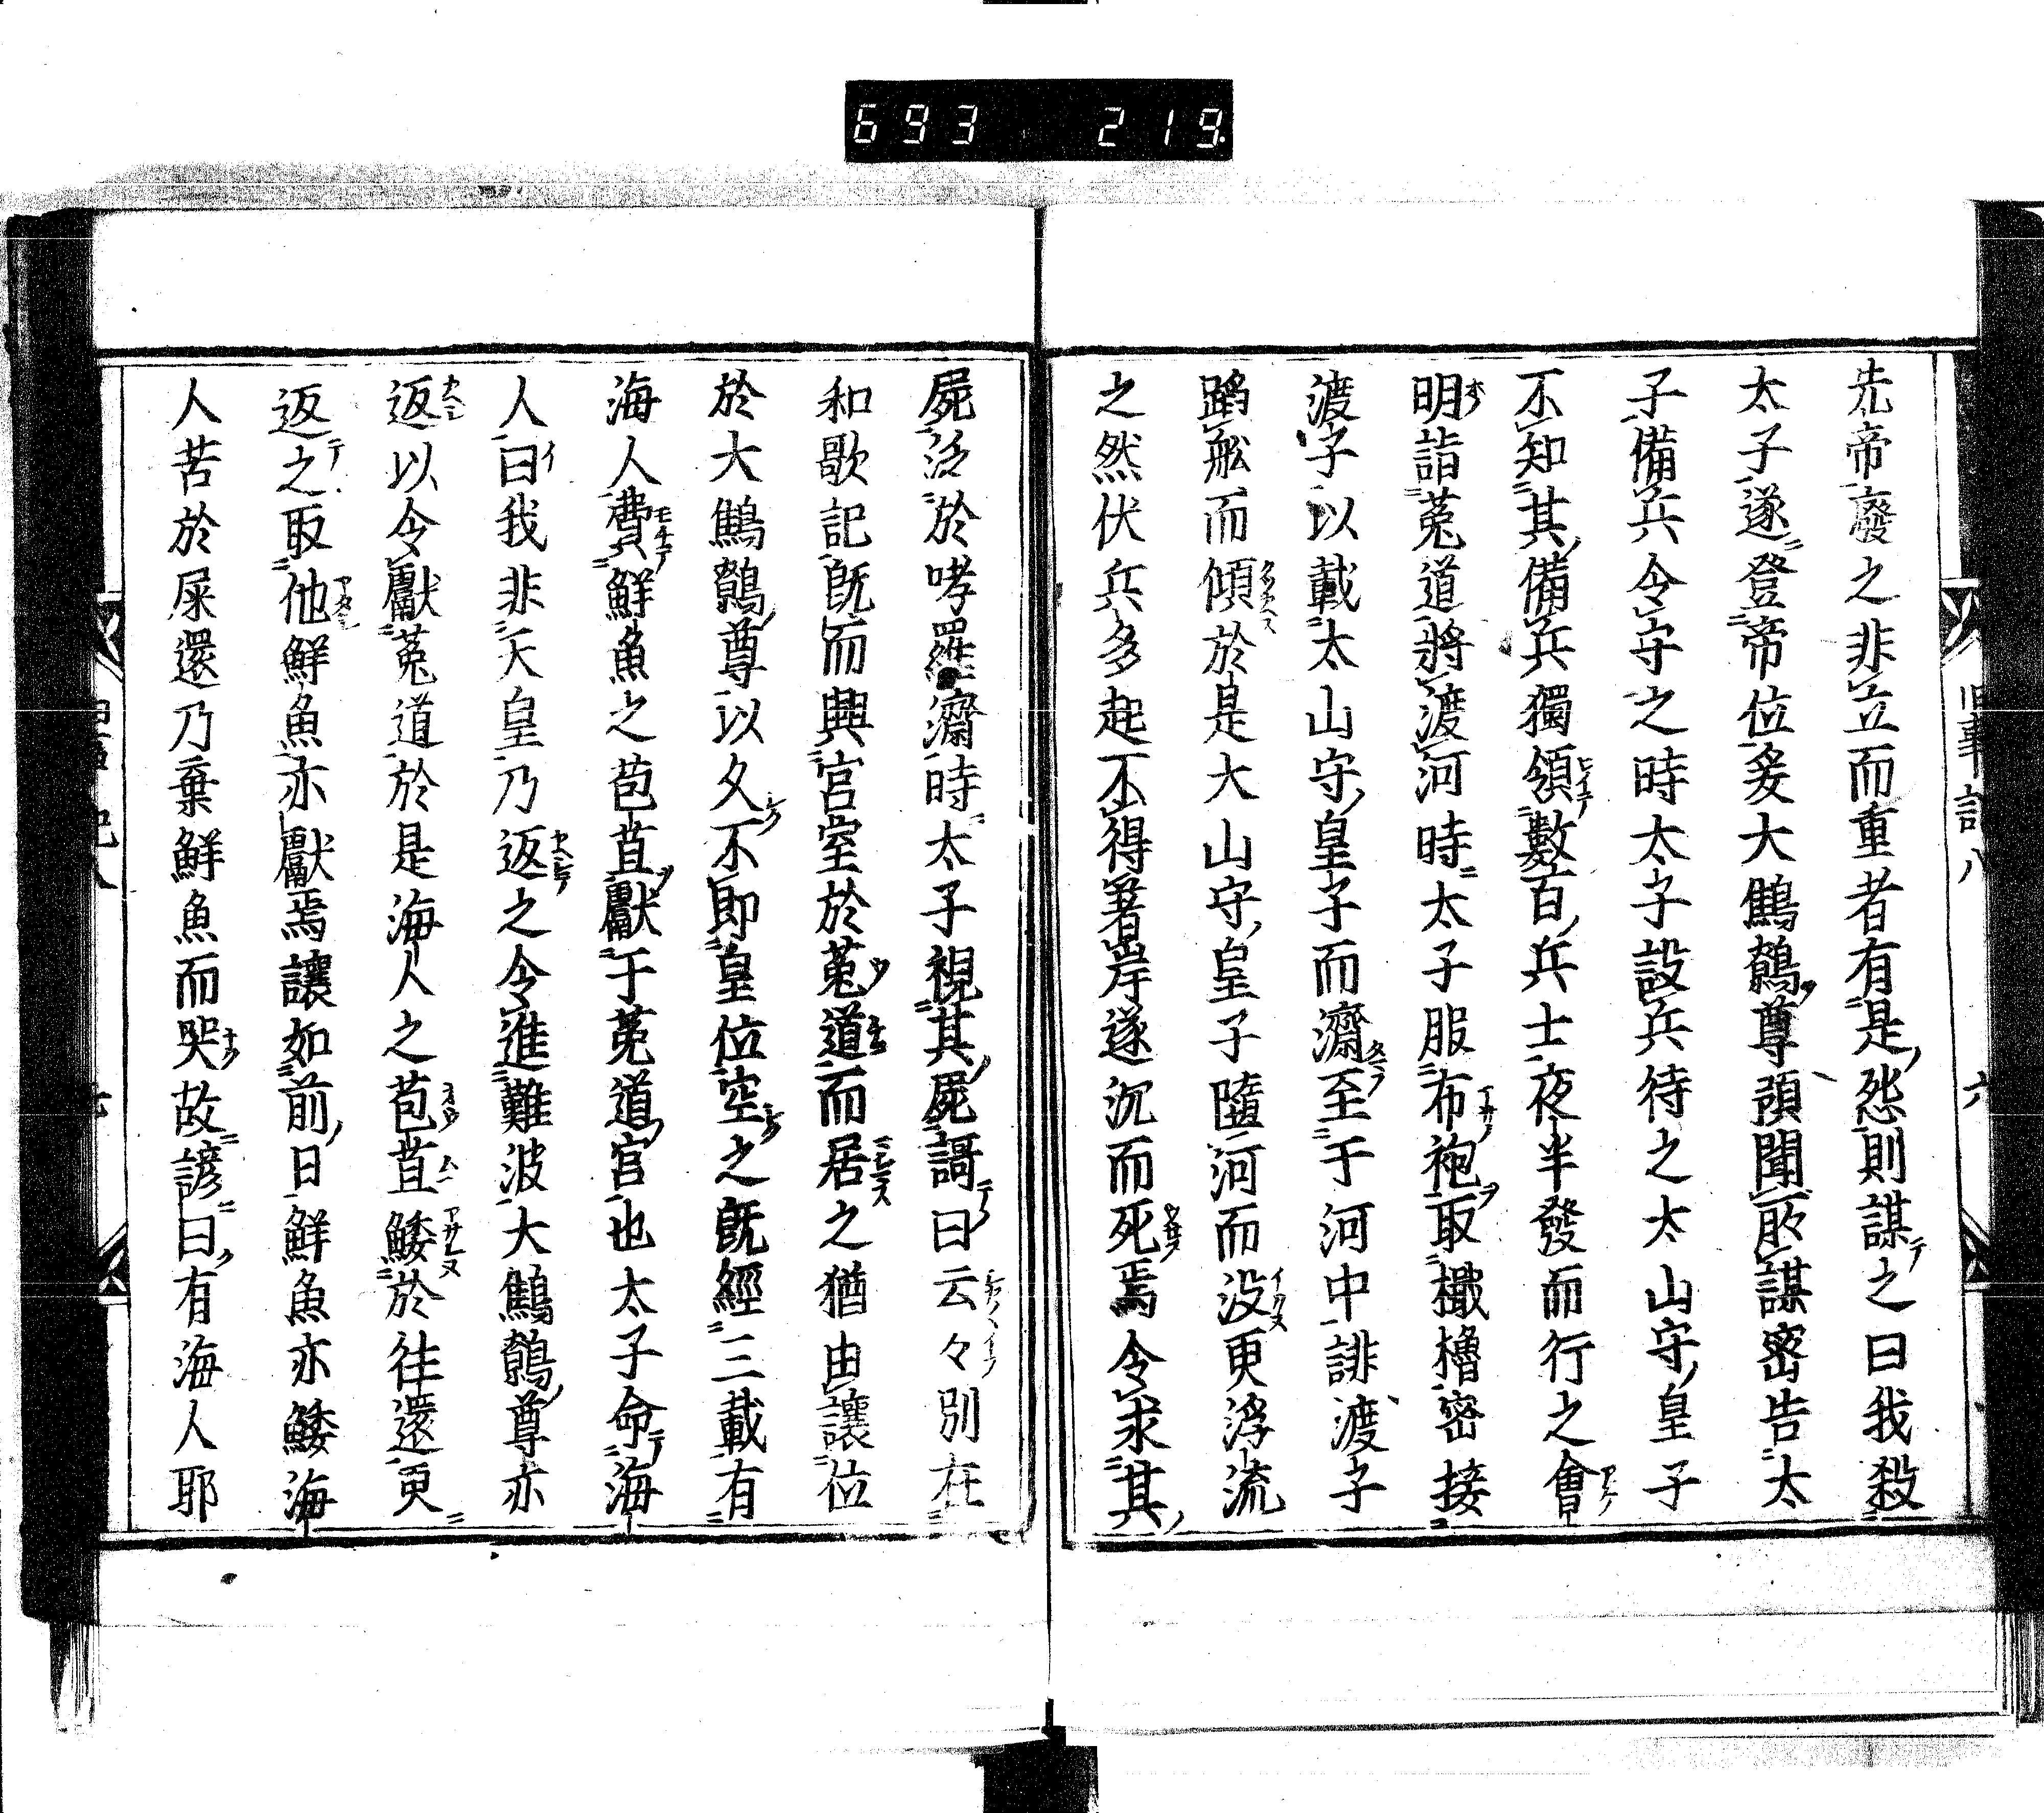 693 219
先帝廢之非立而重者有是怨則謀之曰我殺
太子遂登帝位爰大鷦鷯尊預聞所謀密告太
子備兵令守之時太子設兵待之太山守皇子
不知其備兵獨領數百兵士夜半發而行之會
明詣菟道將渡河時太子服布袍取檝櫓密接
渡子以載太山守皇子而濟至于河中誹渡子
蹈舩而傾於是大山守皇子隨河而没更浮流
之然伏兵多起不得著岸遂沉而死焉令求其
屍泛於哮羅濟時太子視其屍謌曰云々別在
和歌記既而興宮室於菟道而居之猶由讓位
於大鷦鷯尊以久不即皇位空之既經三載有
海人費鮮魚之苞苴獻于菟道宮也太子命海
人曰我非天皇乃返之令進難波大鷦鷯尊亦
返以令獻菟道於是海人之苞苴鯘於徃還更
返之取他鮮魚亦獻焉讓如前日鮮魚亦鯘海
人苦於屎還乃棄鮮魚而哭故諺曰有海人耶